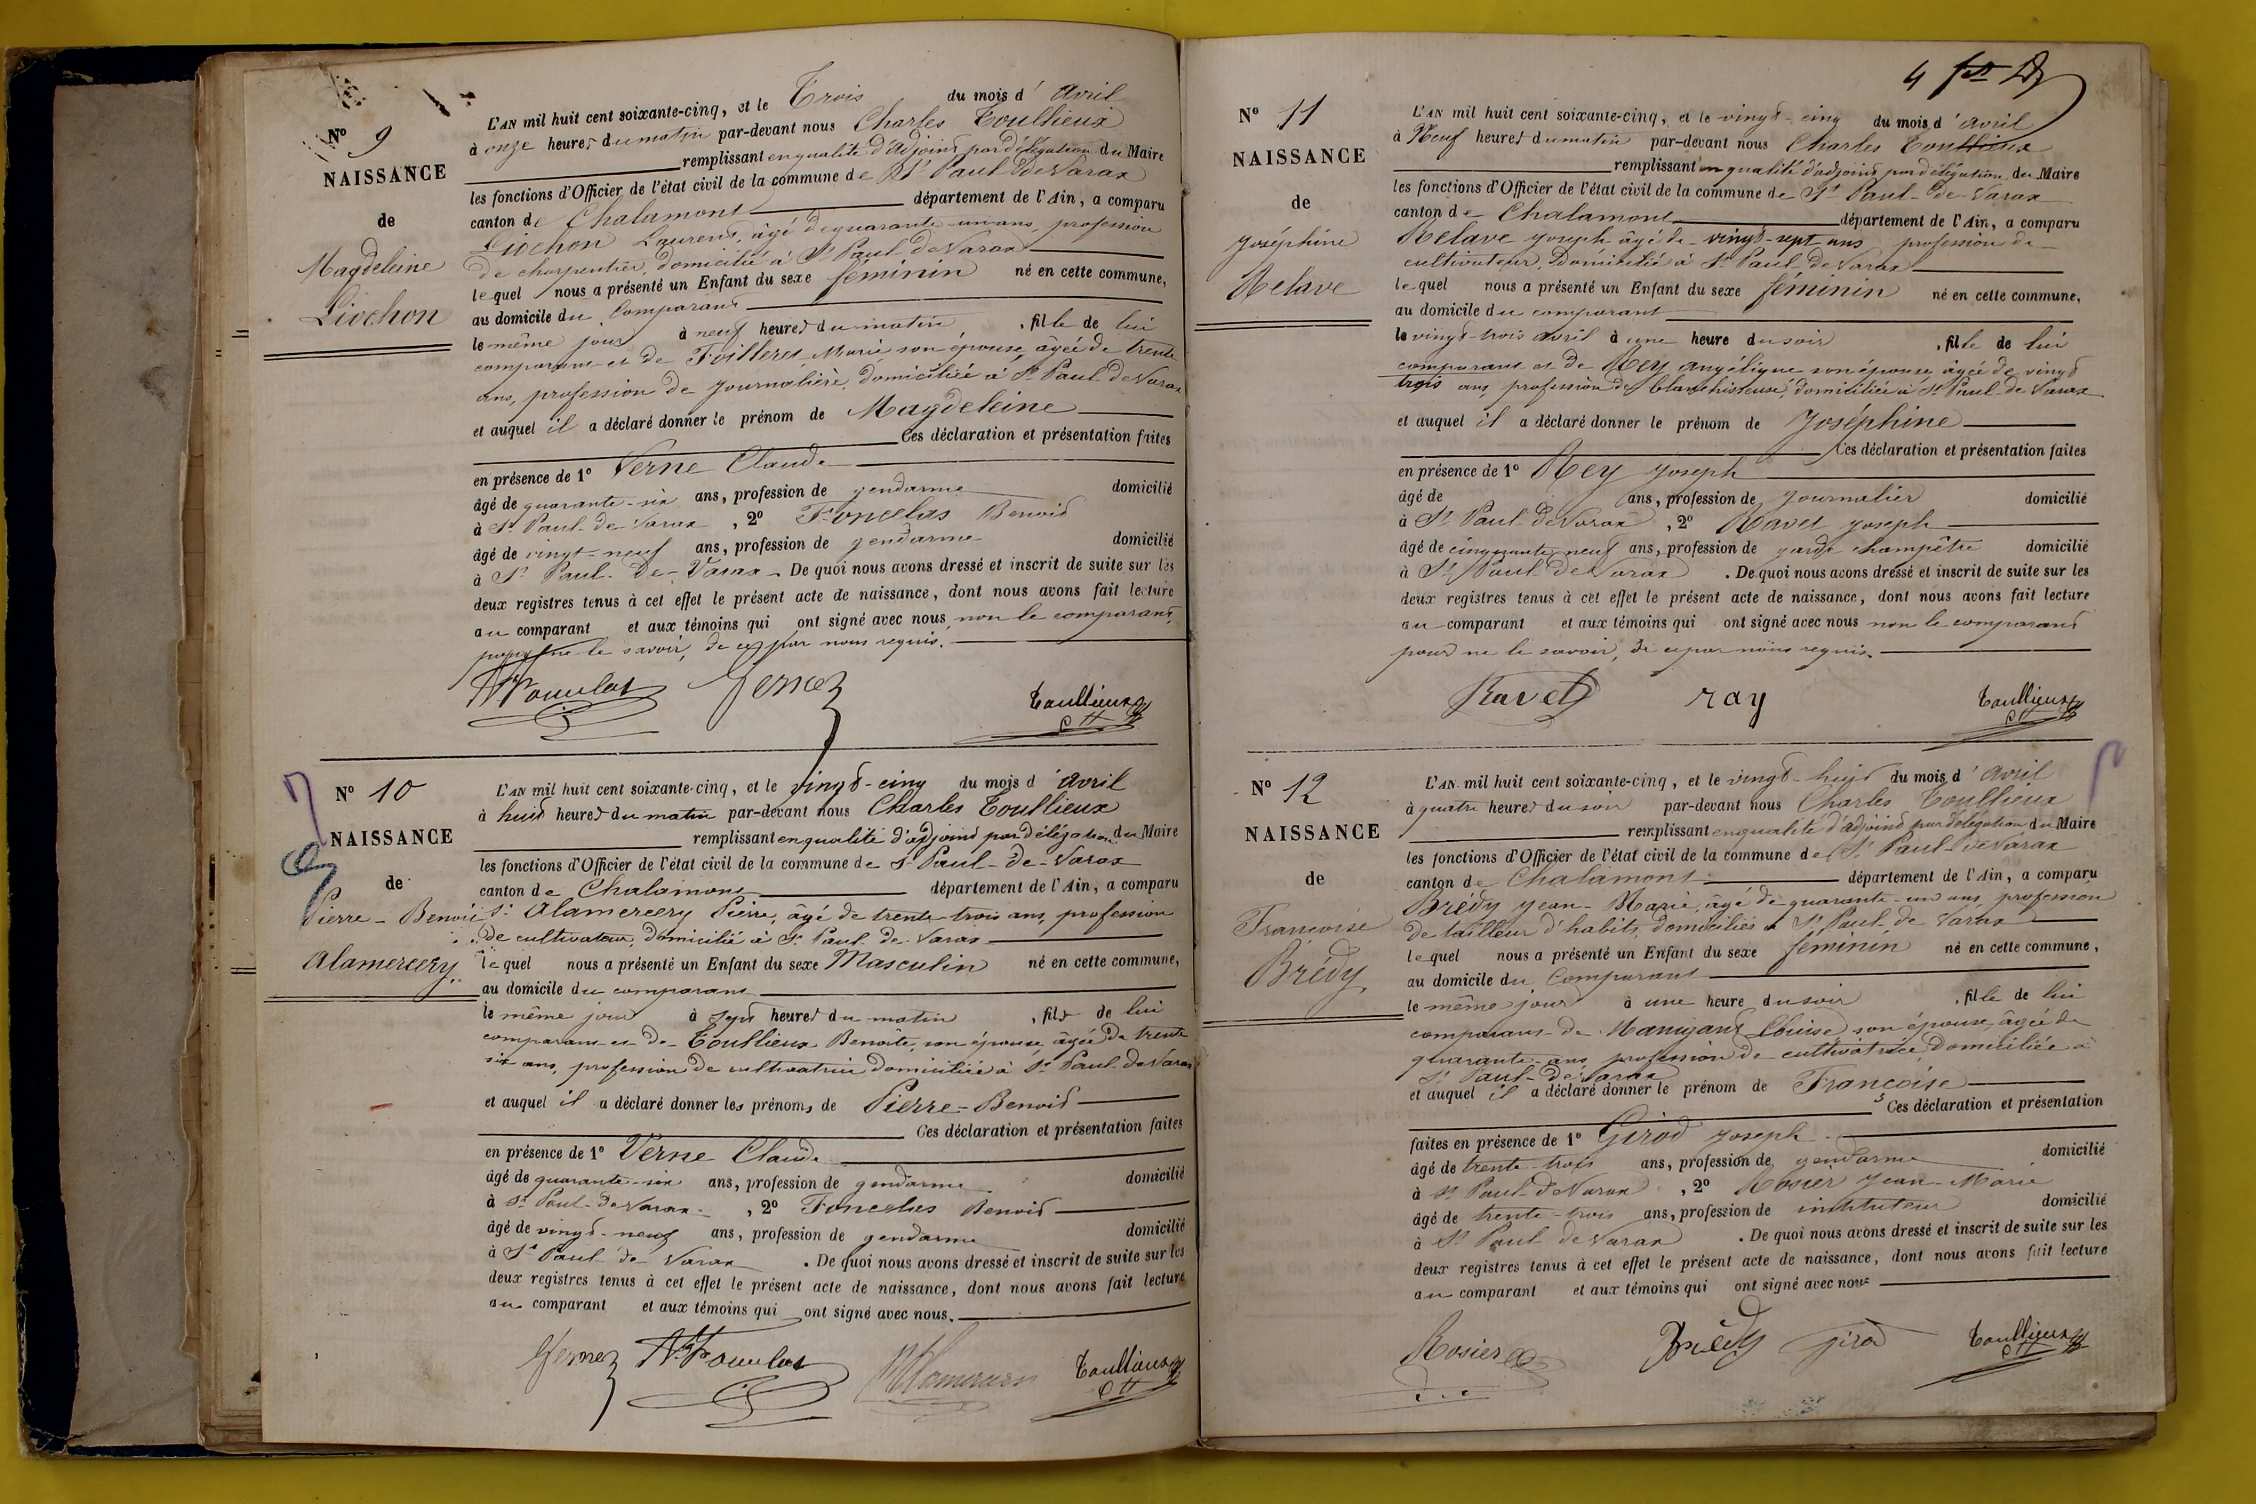 Nº 9
NAISSANCE
de
Magdeleine
Liochon
L'AN mil huit cent soixante-cinq, et le Trois du mois d'avril
à onze heures du matin par-devant nous Charles Toullieux
remplissant en qualité d'adjoint par délégation du Maire
les fonctions d'Officier de l'état civil de la commune de St Paul de Varax
canton de Chalamont département de l'Ain, a comparu
Liochon Laurent, âgé de quarante-un ans, profession
de charpentier, domicilié à St Paul de Varax
lequel nous a présenté un Enfant du sexe féminin né en cette commune,
au domicile du comparant
le même jour à neuf heures du matin, fille de lui
comparant et de Marie son épouse, âgée de trente
ans, profession de journalière, domiciliée à St Paul de Varax
et auquel il a déclaré donner le prénom de Magdeleine
Ces déclaration et présentation faites
en présence de 1º Verne Claude
âgé de quarante-six ans, profession de gendarme domicilié
à St Paul-de-Varax, 2º Fonclas Benoit
âgé de vingt-neuf ans, profession de gendarme domicilié
à St Paul-de-Varax. De quoi nous avons dressé et inscrit de suite sur les
deux registres tenus à cet effet le présent acte de naissance, dont nous avons fait lecture
au comparant et aux témoins qui ont signé avec nous, non le comparant,
pour ne le savoir, de ce par nous requis.
Toullieux
Nº 10
NAISSANCE
de
Pierre-Benoit
Alamercery
L'AN mil huit cent soixante-cinq, et le vingt-cinq du mois d'avril
à huit heures du matin par-devant nous Charles Toullieux
remplissant en qualité d'adjoint par délégation du Maire
les fonctions d'Officier de l'état civil de la commune de St Paul-de-Varax
canton de Chalamont département de l'Ain, a comparu
sr Alamercery Pierre, âgé de trente-trois ans, profession
de cultivateur, domicilié à St Paul-de-Varax
lequel nous a présenté un Enfant du sexe Masculin né en cette commune,
au domicile du comparant
le même jour à sept heures du matin, fils de lui
comparant et de Toullieux Benoîte, son épouse, âgée de trente
six ans, profession de cultivatrice domiciliée à St Paul de Varax
et auquel il a déclaré donner les prénoms de Pierre-Benoit
Ces déclaration et présentation faites
en présence de 1º Verne Claude
âgé de quarante-six ans, profession de gendarme domicilié
à St Paul-de-Varax, 2º Fonclas Benoit
âgé de vingt-neuf ans, profession de gendarme domicilié
à St Paul de Varax. De quoi nous avons dressé et inscrit de suite sur les
deux registres tenus à cet effet le présent acte de naissance, dont nous avons fait lecture
au comparant et aux témoins qui ont signé avec nous.
Toullieux
4
Nº 11
NAISSANCE
de
Joséphine
Relave
L'AN mil huit cent soixante-cinq, et le vingt-cinq du mois d'avril
à Neuf heures du matin par-devant nous Charles Toullieux
remplissant en qualité d'adjoint par délégation du Maire
les fonctions d'Officier de l'état civil de la commune de St Paul-de-Varax
canton de Chalamont département de l'Ain, a comparu
Relave Joseph âgé de vingt-sept ans profession de
cultivateur, Domicilié à St Paul de Varax
lequel nous a présenté un Enfant du sexe féminin né en cette commune,
au domicile du comparant
le vingt-trois avril à une heure du soir, fille de lui
comparant et de Rey angélique son épouse, âgée de vingt
trois ans, profession de blanchisseuse, domiciliée à St Paul-de-Varax
et auquel il a déclaré donner le prénom de Joséphine
Ces déclaration et présentation faites
en présence de 1º Rey Joseph
âgé de ans, profession de journalier domicilié
à St Paul de Varax, 2º Ravet Joseph
âgé de cinquante neuf ans, profession de garde champêtre domicilié
à St Paul de Varax. De quoi nous avons dressé et inscrit de suite sur les
deux registres tenus à cet effet le présent acte de naissance, dont nous avons fait lecture
au comparant et aux témoins qui ont signé avec nous non le comparant
pour ne le savoir, de ce par nous requis.
Ravet ray Toullieux
Nº 12
NAISSANCE
de
Françoise
Brédy
L'AN mil huit cent soixante-cinq, et le vingt-huit du mois d'avril
à quatre heures du soir par-devant nous Charles Toullieux
remplissant en qualité d'adjoint par délégation du Maire
les fonctions d'Officier de l'état civil de la commune de St Paul-de Varax
canton de Chalamont département de l'Ain, a comparu
Brédy Jean-Marie, âgé de quarante-un ans, profession
de tailleur d'habits, domicilié à St Paul-de Varax
lequel nous a présenté un Enfant du sexe féminin né en cette commune,
au domicile du comparant
le même jour à une heure du soir, fille de lui
comparant de Louise, son épouse, âgée de
quarante-ans, profession de cultivatrice, domiciliée à
St Paul-de Varax
et auquel il a déclaré donner le prénom de Françoise
Ces déclaration et présentation
faites en présence de 1º Girod Joseph
âgé de trente-trois ans, profession de gendarme domicilié
à St Paul-de Varax, 2º Rosier Jean-Marie
âgé de trente-trois ans, profession de instituteur domicilié
à St Paul de Varax. De quoi nous avons dressé et inscrit de suite sur les
deux registres tenus à cet effet le présent acte de naissance, dont nous avons fait lecture
au comparant et aux témoins qui ont signé avec nous
Rosier Brédy girod Toullieux